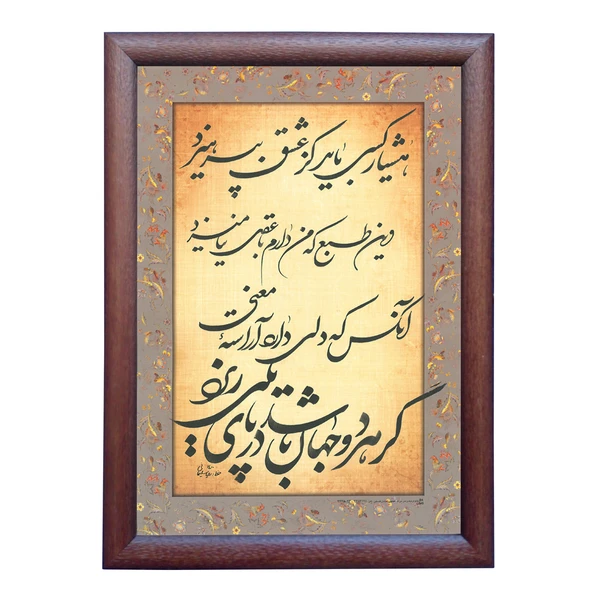 هشیار کسی باید کز عشق بپرهیزد
وین طبع که من دارم با عقل نیامیزد
آنکس که دلی دارد آراستهٔ معنی
گر هر دو جهان باشد در پای یکی ریزد